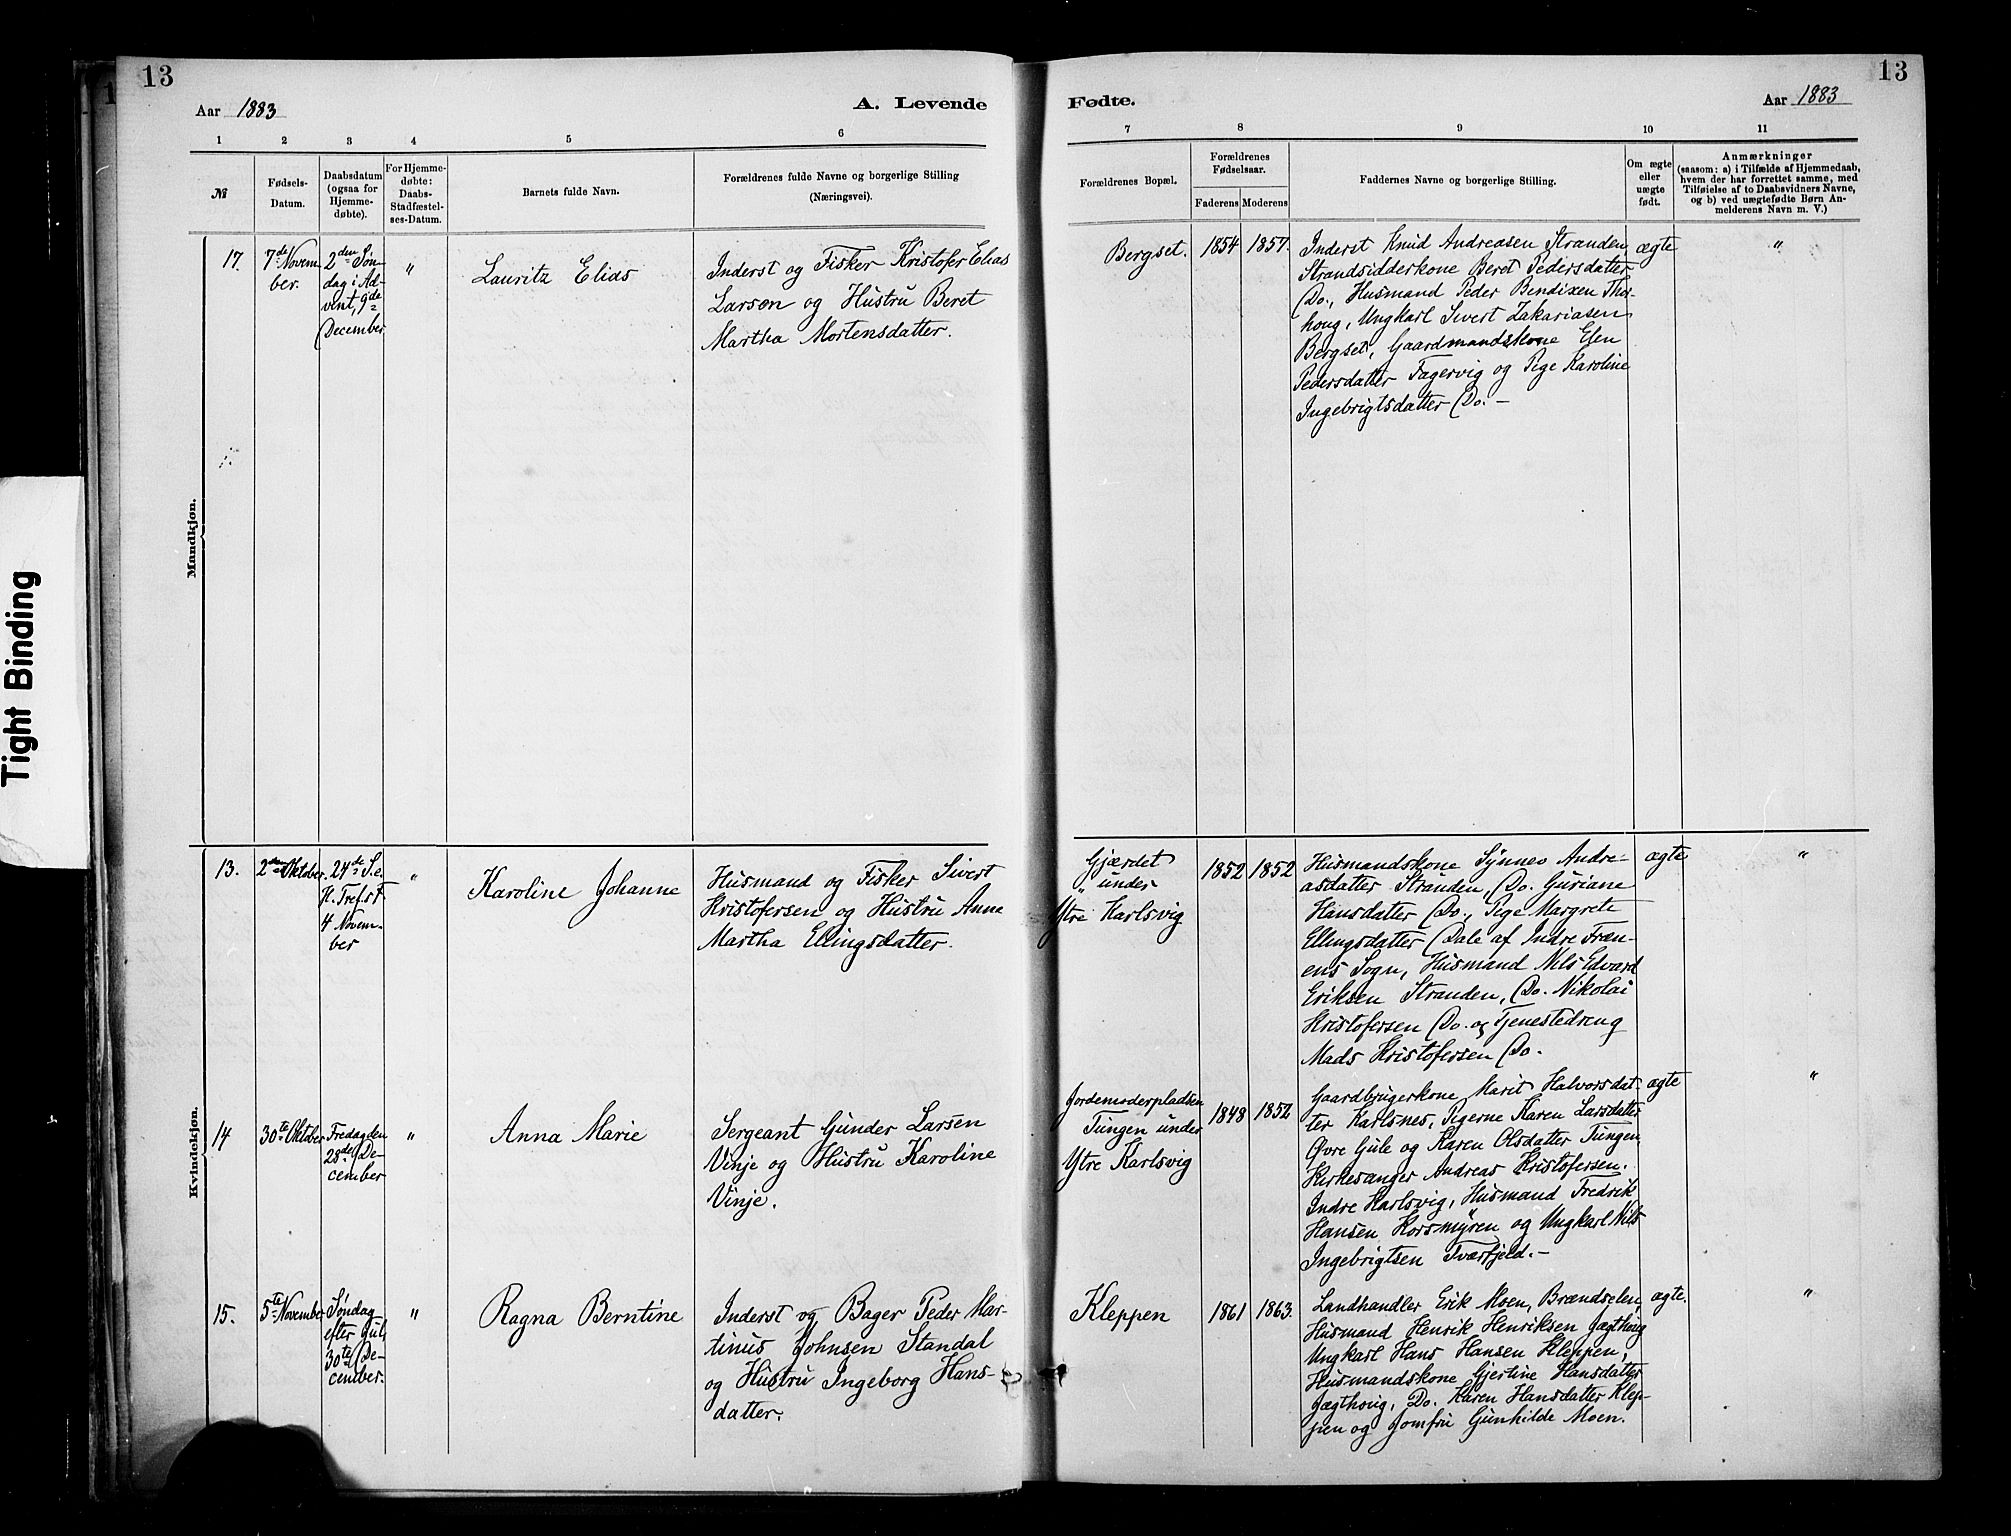 13
Aar 1883
A. Levende
Fødte.
Aar 1883
13
1 2 3 4 5 6 7 8 9 10 11
№
Fødsels-
Datum.
Daabsdatum
(ogsaa for
Hjemme-
døbte).
For Hjemme-
døbte:
Daabs-
Stadfæstel-
ses-Datum.
Barnets fulde Navn.
Forældrenes fulde Navne og borgerlige Stilling
(Næringsvei).
Forældrenes Bopæl.
Forældrenes
Fødselsaar.
Faderens Moderens
Faddernes Navne og borgerlige Stilling.
Om ægte
eller
uægte
født.
Anmærkninger
(saasom: a) i Tilfælde af Hjemmedaab,
hvem der har forrettet samme, med
Tilføielse af to Daabsvidners Navne,
og b) ved uægtefødte Børn An-
melderens Navn m. V.)
Mandkjøn.
17.
7de Novem
ber.
2den Søn
dag i Ad-
vent, 9de
December
"
Lauritz Elias
Inderst og Fisker Kristofer Elias
Larsen og Hustru Beret
Martha Mortensdatter.
Bergset.
1854 1857.
Inderst Knud Andreasen Stranden,
Strandsidderkone Beret Pedersdatter
Do., Husmand Peder Bendixen Thor-
houg, Ungkarl Sivert Zakariasen
Bergset, Gaardmandskone Elen
Pedersdatter Fagervig og Pige Karoline
Ingebrigtsdatter Do. –
ægte
"
Kvindekjøn.
13.
2den Oktober.
24de S. e.
H. Tref. F
4 Novem-
ber
"
Karoline Johanne
Husmand og Fisker Sivert
Kristofersen og Hustru Anne
Martha Ellingsdatter.
Gjærdet
" under
Ytre Karlsvig
1852 1852
Husmandskone Synnev Andre-
asdatter Stranden, Do. Guriane
Hansdatter Do., Pige Margrete
Ellingsdatter Dale af Indre Fræn-
ens Sogn, Husmand Nils Edvard
Eriksen Stranden, Do. Nikolai
Kristofersen Do. og Tjenestedreng
Mads Kristofersen Do.
ægte
"
14
30te Oktober
Fredag den
28de De-
cember
"
Anna Marie
Sergeant Gunder Larsen
Vinje og Hustru Karoline
Vinje.
Jordemoderpladsen
Tungen under
Ytre Karlsvig
1848 1852
Gaardbrugerkone Marit Halvorsdat-
ter Karlsnes, Pigerne Karen Larsdatter
Øvre Gule og Karen Olsdatter Tungen
Kirkesanger Andreas Kristofersen.
Indre Karlsvig, Husmand Fredrik
Hansen Korsmyren og Ungkarl Nils
Ingebrigtsen Tværfjeld. –
ægte
"
15.
5te November
Søndag
efter Jul,
30te De-
cember.
"
Ragna Berntine
Inderst og Bager Peder Mar-
tinus Johnsen Standal
og Hustru Ingeborg Hans-
datter.
Kleppen
1861 1863.
Landhandler Erik Moen, Brændselen,
Husmand Henrik Henriksen Jægthoug
Ungkarl Hans Hansen Kleppen,
Husmandskone Gjertine Hansdatter
Jægthoug, Do. Karen Hansdatter Klep-
pen og Jomfru Gunhilde Moen.
ægte.
"
Tight Binding